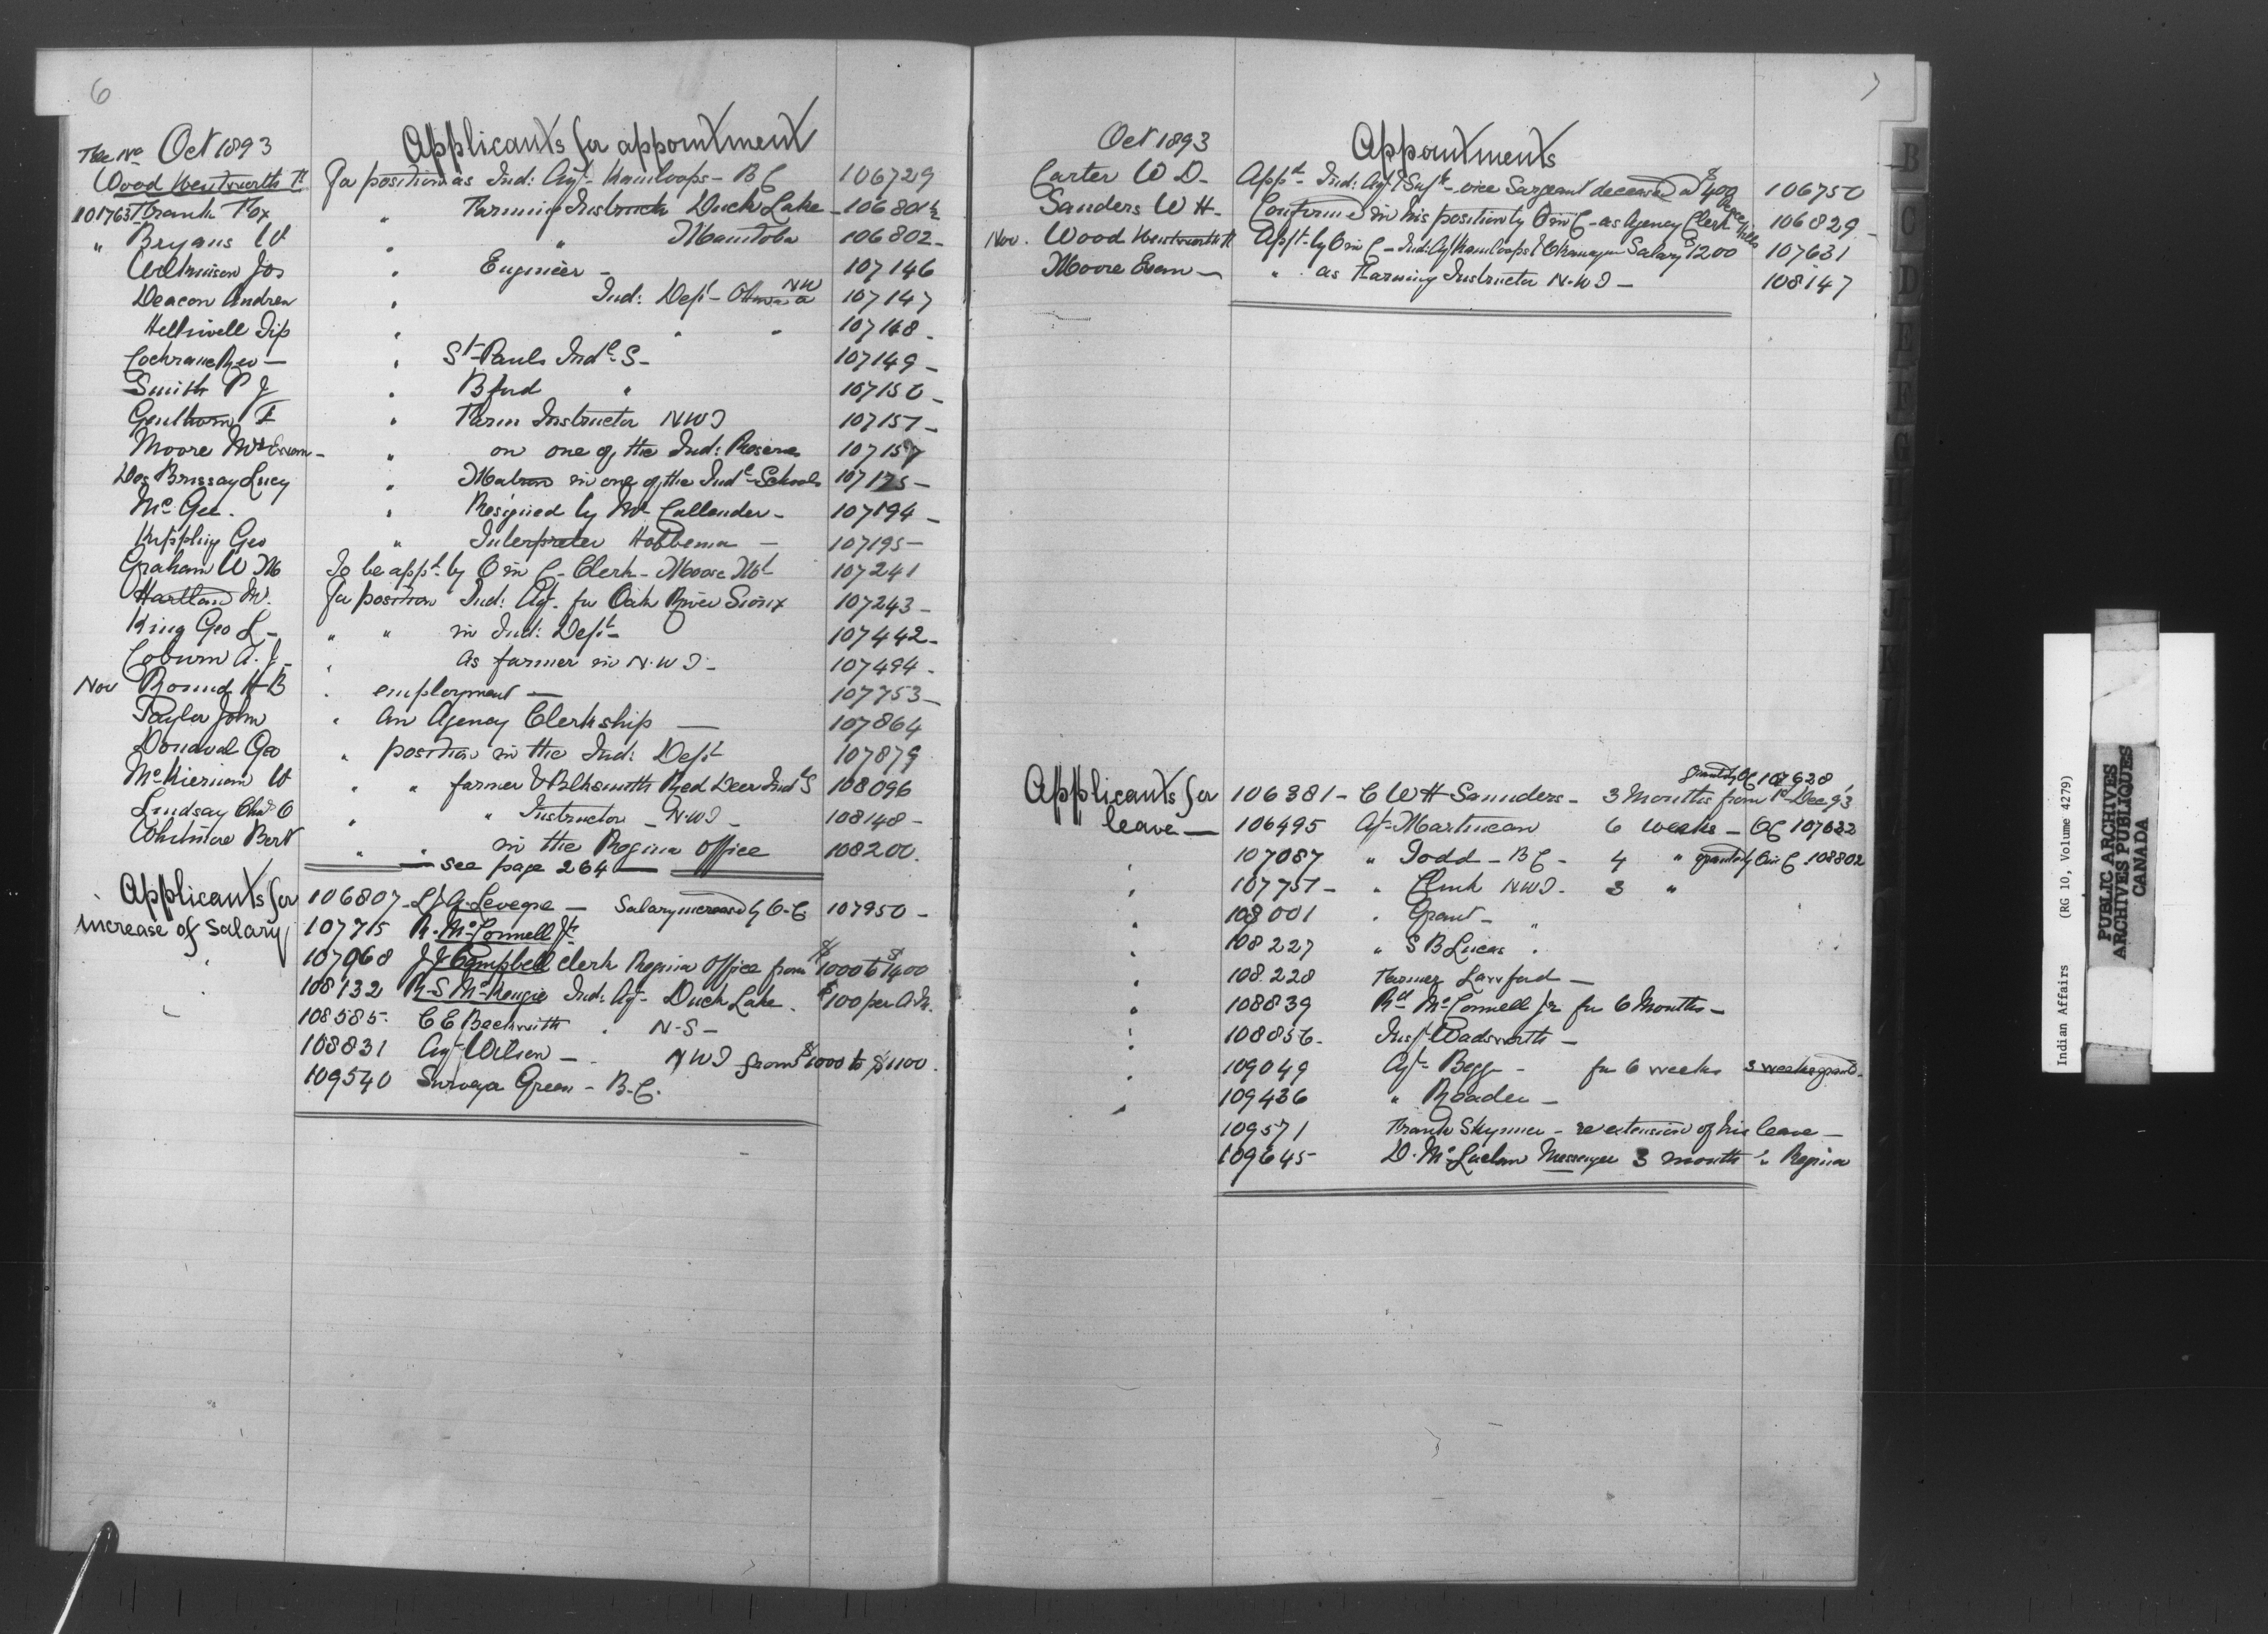 6
File No Oct 1893 Applicants for appointment
Wood Wentworth F For position as Ind: Agt- Kamloops - B C 106729
101763 Frank Fox " Farming Instruct Duck Lake - 106801½
" Bryans W " " Manitoba 106802 -
Jos " Engineer - 107146
Deacon Andrew " Ind: Dept - Ottawa NW 107147
Helliwell Tip " " " 107148 -
Cochrane Geo - " St Pauls Indl S - 107149 -
Smith P J " Bford " 107150 -
F " Farm Instructor NWT 107151 -
Moore Mr Evan - " on one of the Ind: Reserves
Des Brissay Lucy " Matron in one of the Indl Schools 107175 -
McGee. " Resigned by Mr Callender - 107194 -
Kippling Geo " Interpreter Hobbema - 107195 -
Graham W M To be appt by O in C - Clerk - Moose Mt 107241
Hartland M. For position Ind: Agt. for Oak River Sioux 107243 -
King Geo L - " " in Ind: Dept - 107442 -
Coburn A. J - " as farmer in N.W T - 107494 -
Nov Round H B " employment - 107753 -
Taylor John " An Agency Clerkship - 107864
Geo " position in the Ind: Dept 107879
McKiernan W " " farmer & Blksmith Red Deer Indl S 108096
Lindsay Chas C " " Instructor - NWT - 108148 -
Whitmore Bert " " in the Regina Office 108200.
see page 264
Applicants for increase of Salary
106807 - L J A. Leveque - Salary increased by O.C. 107950 -
107715 R. McConnell Jr
107968 J J Campbell Clerk Regina Office from $1000 to $1400
108132 R-S McKenzie Ind: Agt - Duck Lake. $100 per An.
108585. C E Beckwith " N-S -
108831 Agt Wilson - NWT from $1000 to $1100.
109540 Surveyor Green - B.C.
7
Oct 1893 Appointments
Carter W D - Appd - Ind: Agt & Supt - vice Sargeant deceased at $400 106750
Sanders W H - Confirmed in his position by O in C - as Agency Clerk Peace Hills 106829 -
Nov. Wood Wentworth F Appt - by O in C - Ind: Agt Kamloops & Okanagan Salary $1200 107631
Moore Evan - " as Farming Instructor N.W T - 108147
Applicants for leave -
granted by OC 107628
106381 - C W H Saunders - 3 Months from 1st Dec 93
106495 Agt Martineau 6 weeks - OC 107622
107087 " Todd - B C - 4 " granted by O in C 108802
107751 - " Clink NWT - 3 "
108001 " Grant - "
108227 " S B Lucas "
108.228 Farmer Lawford -
108839 Rd McConnell Jr for 6 Months -
108856 - Inspt Wadsworth -
109049 Agt - Begg - for 6 weeks 3 weeks grantd.
109436 " Reader -
109571 Frank Skynner - re extension of his leave -
109645 D. McLuclan Messenger 3 month's Regina
B
C
D
E
F
G
H
I
J
K
Indian Affairs (RG 10, Volume 4279)
PUBLIC ARCHIVES
ARCHIVES PUBLIQUES
CANADA